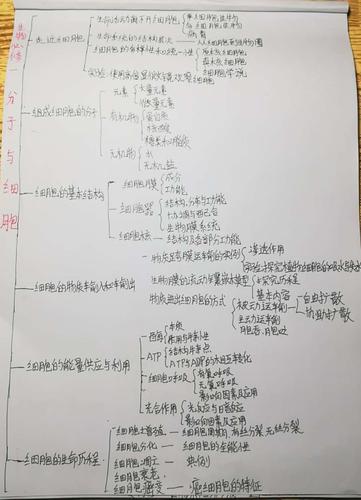 生物必修一
分子与细胞
走近细胞
生命活动离不开细胞
单细胞生物
多细胞生物
病毒
生命系统的结构层次
从细胞到生物圈
细胞的多样性和统一性
原核细胞
真核细胞
细胞学说
实验:使用高倍显微镜观察细胞
组成细胞的分子
元素
大量元素
微量元素
有机物
蛋白质
核酸
糖类和脂质
无机物
水
无机盐
细胞的基本结构
细胞膜
成分
功能
细胞器
结构,分布与功能
分工与合作
生物膜系统
细胞核
结构及各部分功能
细胞的物质输入和输出
物质跨膜运输的实例
渗透作用
实验:探究植物细胞的吸水与失水
生物膜的流动镶嵌模型
探究历程
基本内容
物质进出细胞的方式
被动运输
自由扩散
协助扩散
主动运输
胞吞、胞吐
细胞的能量供应与利用
酶
本质
作用与特性
ATP
结构与特点
ATP与ADP的相互转化
细胞呼吸
有氧呼吸
无氧呼吸
影响因素及应用
光合作用
光反应与暗反应
影响因素及应用
细胞的生命历程
细胞增殖
细胞周期 有丝分裂 无丝分裂
细胞分化
细胞的全能性
细胞凋亡
实例
细胞衰老
细胞癌变
癌细胞的特征